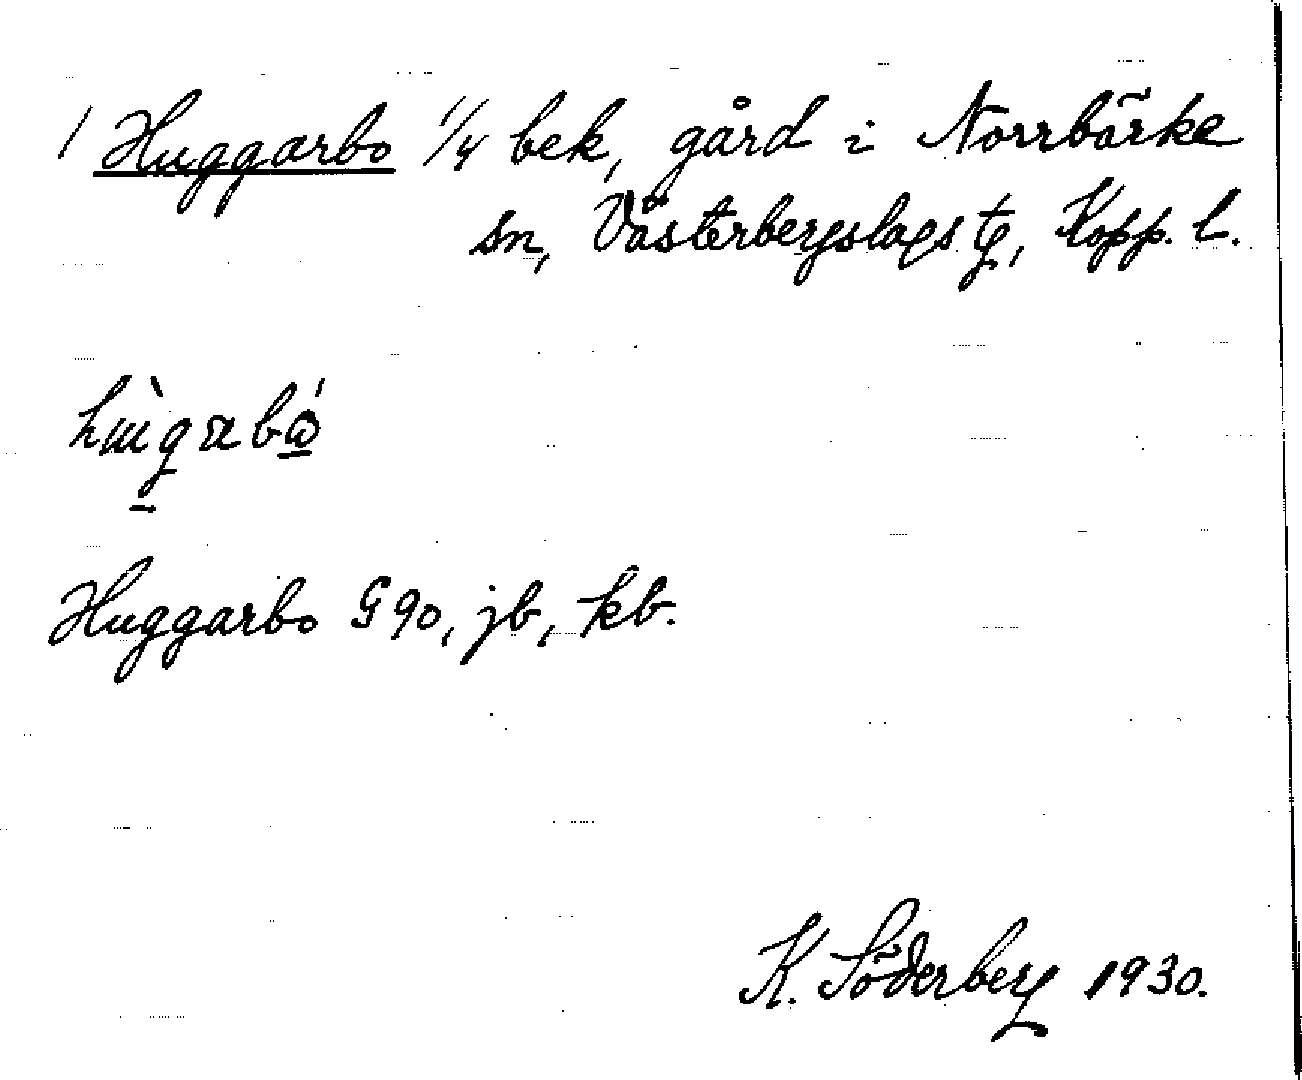 / Huggarbo 1/4 bek, gård i Norrbärke
sn, Västerbergslags tg, Kopp. l.
Huggarbo G 90, jb, kb.
K. Söderberg 1930.